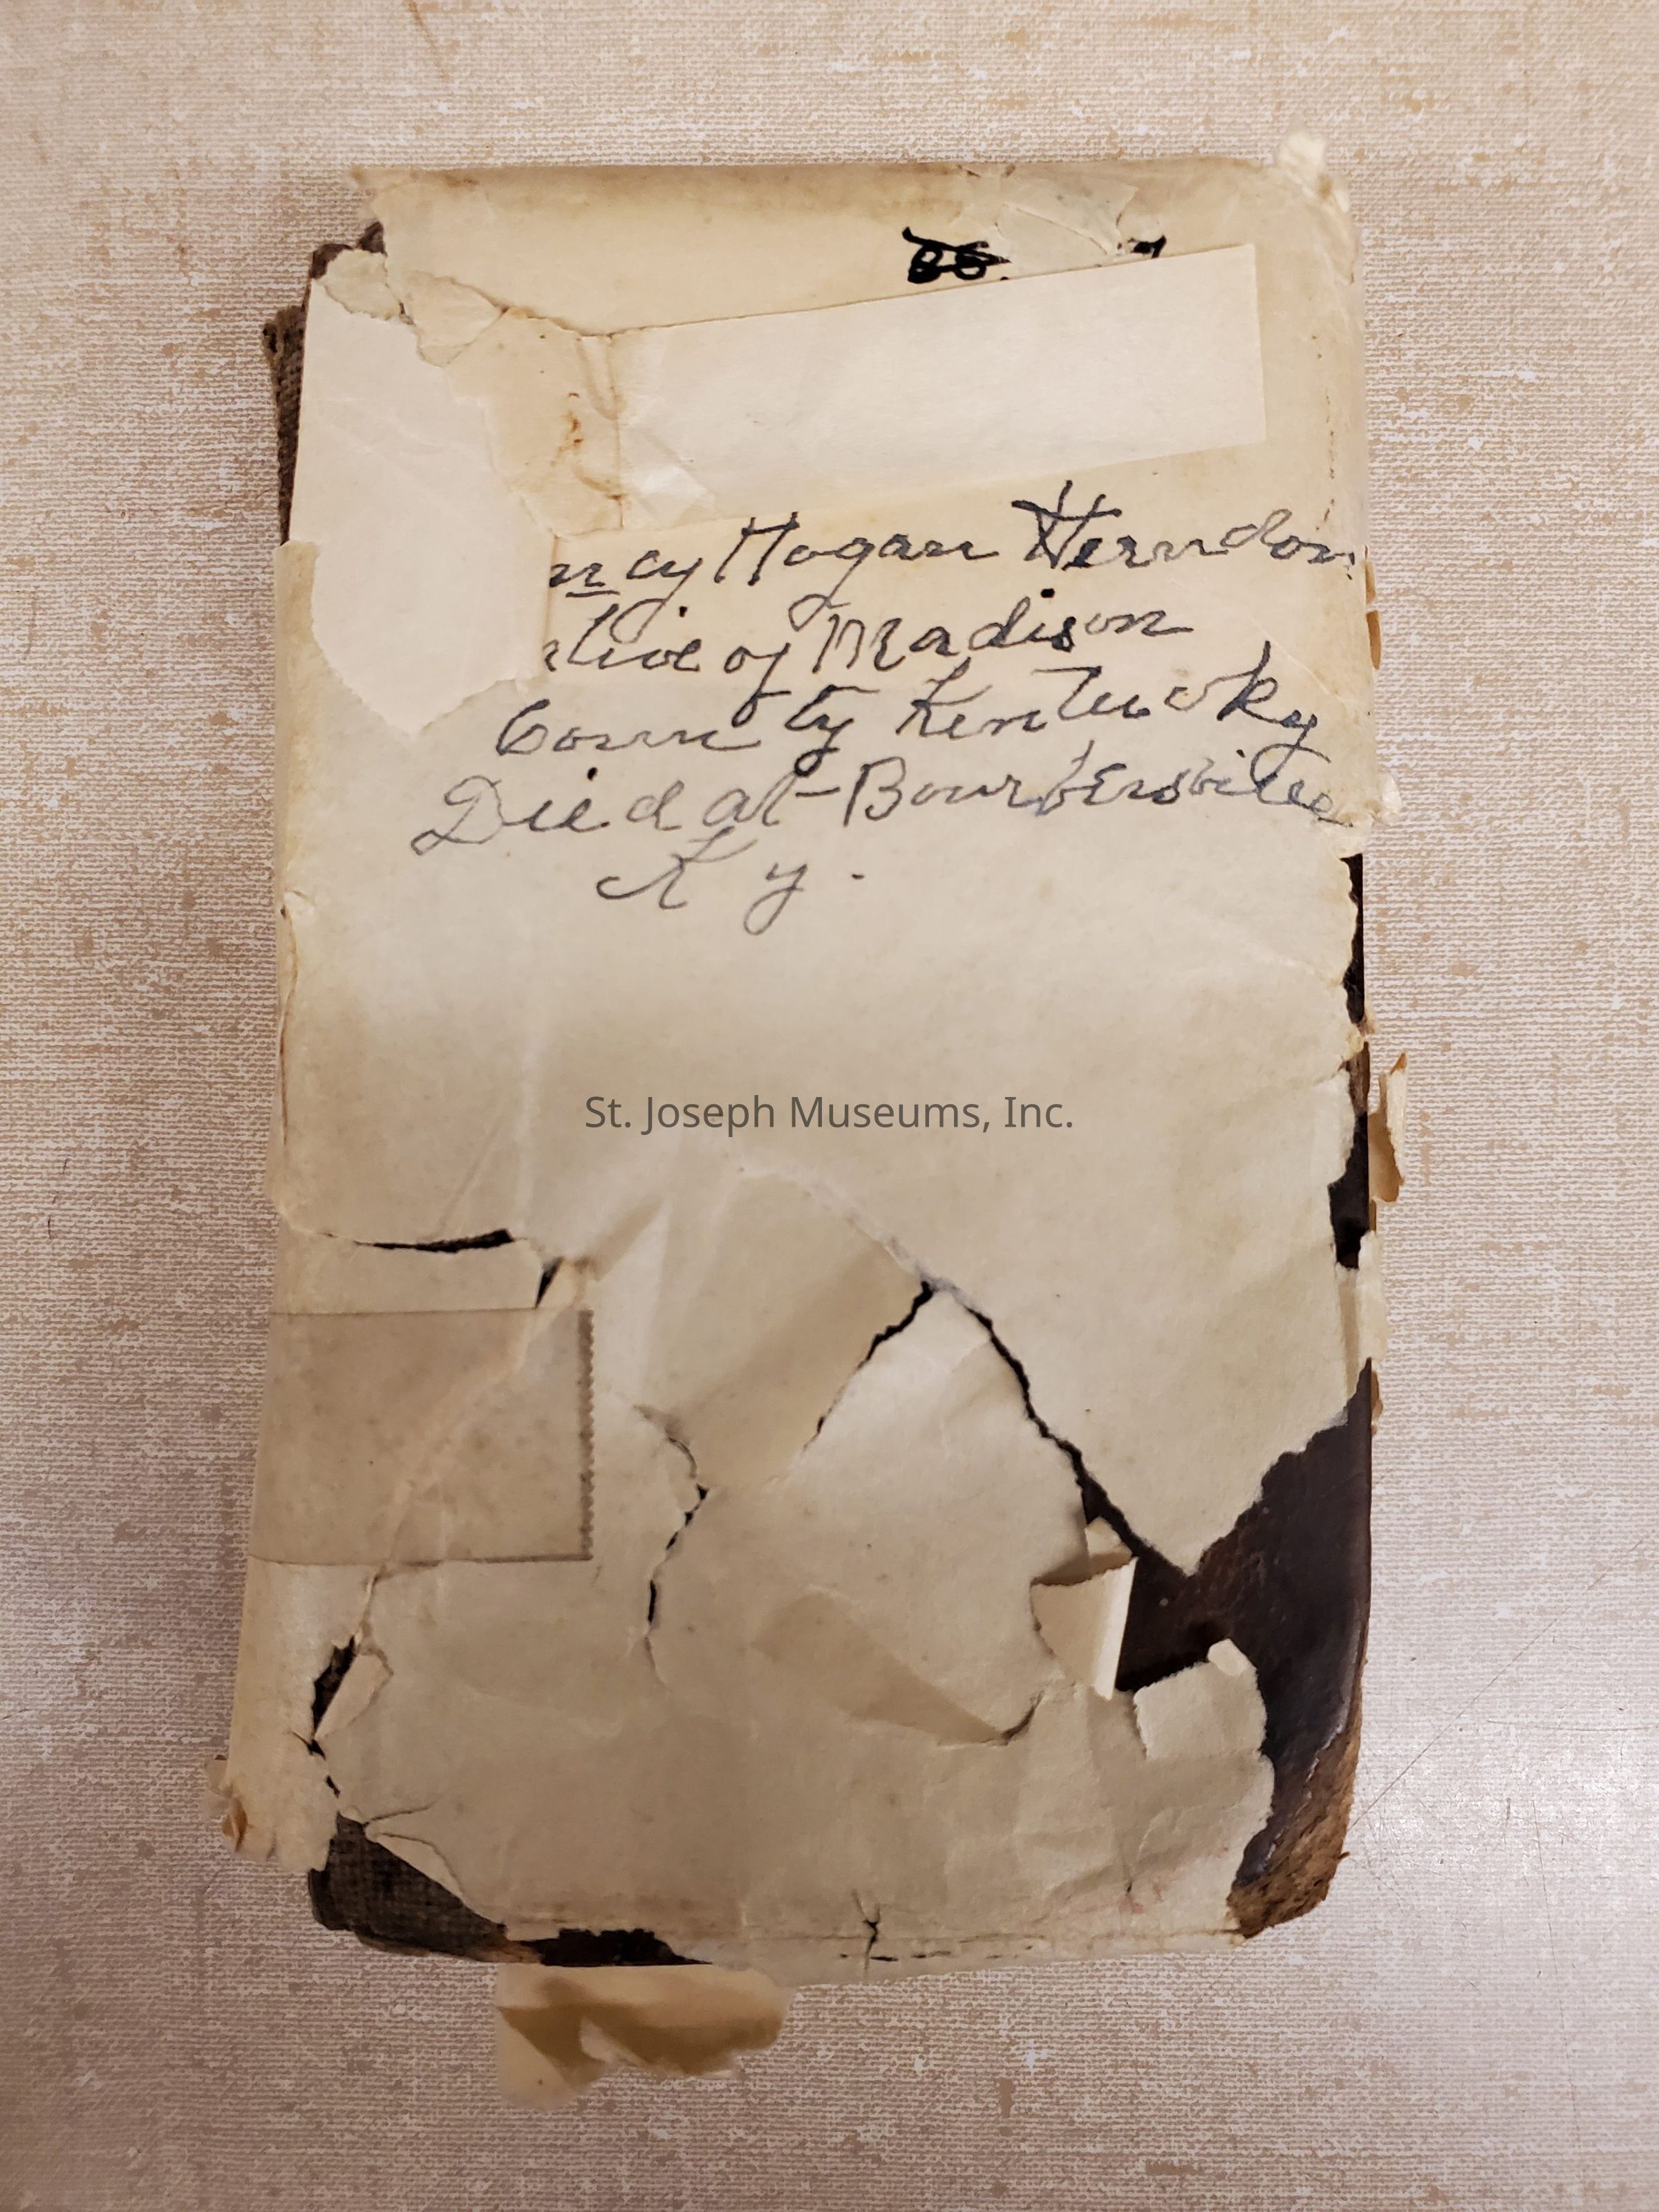 ncy Hogan Herndon
ative of Madison
County Kentucky
Died at Bourbersville
Ky.
St. Joseph Museums, Inc.